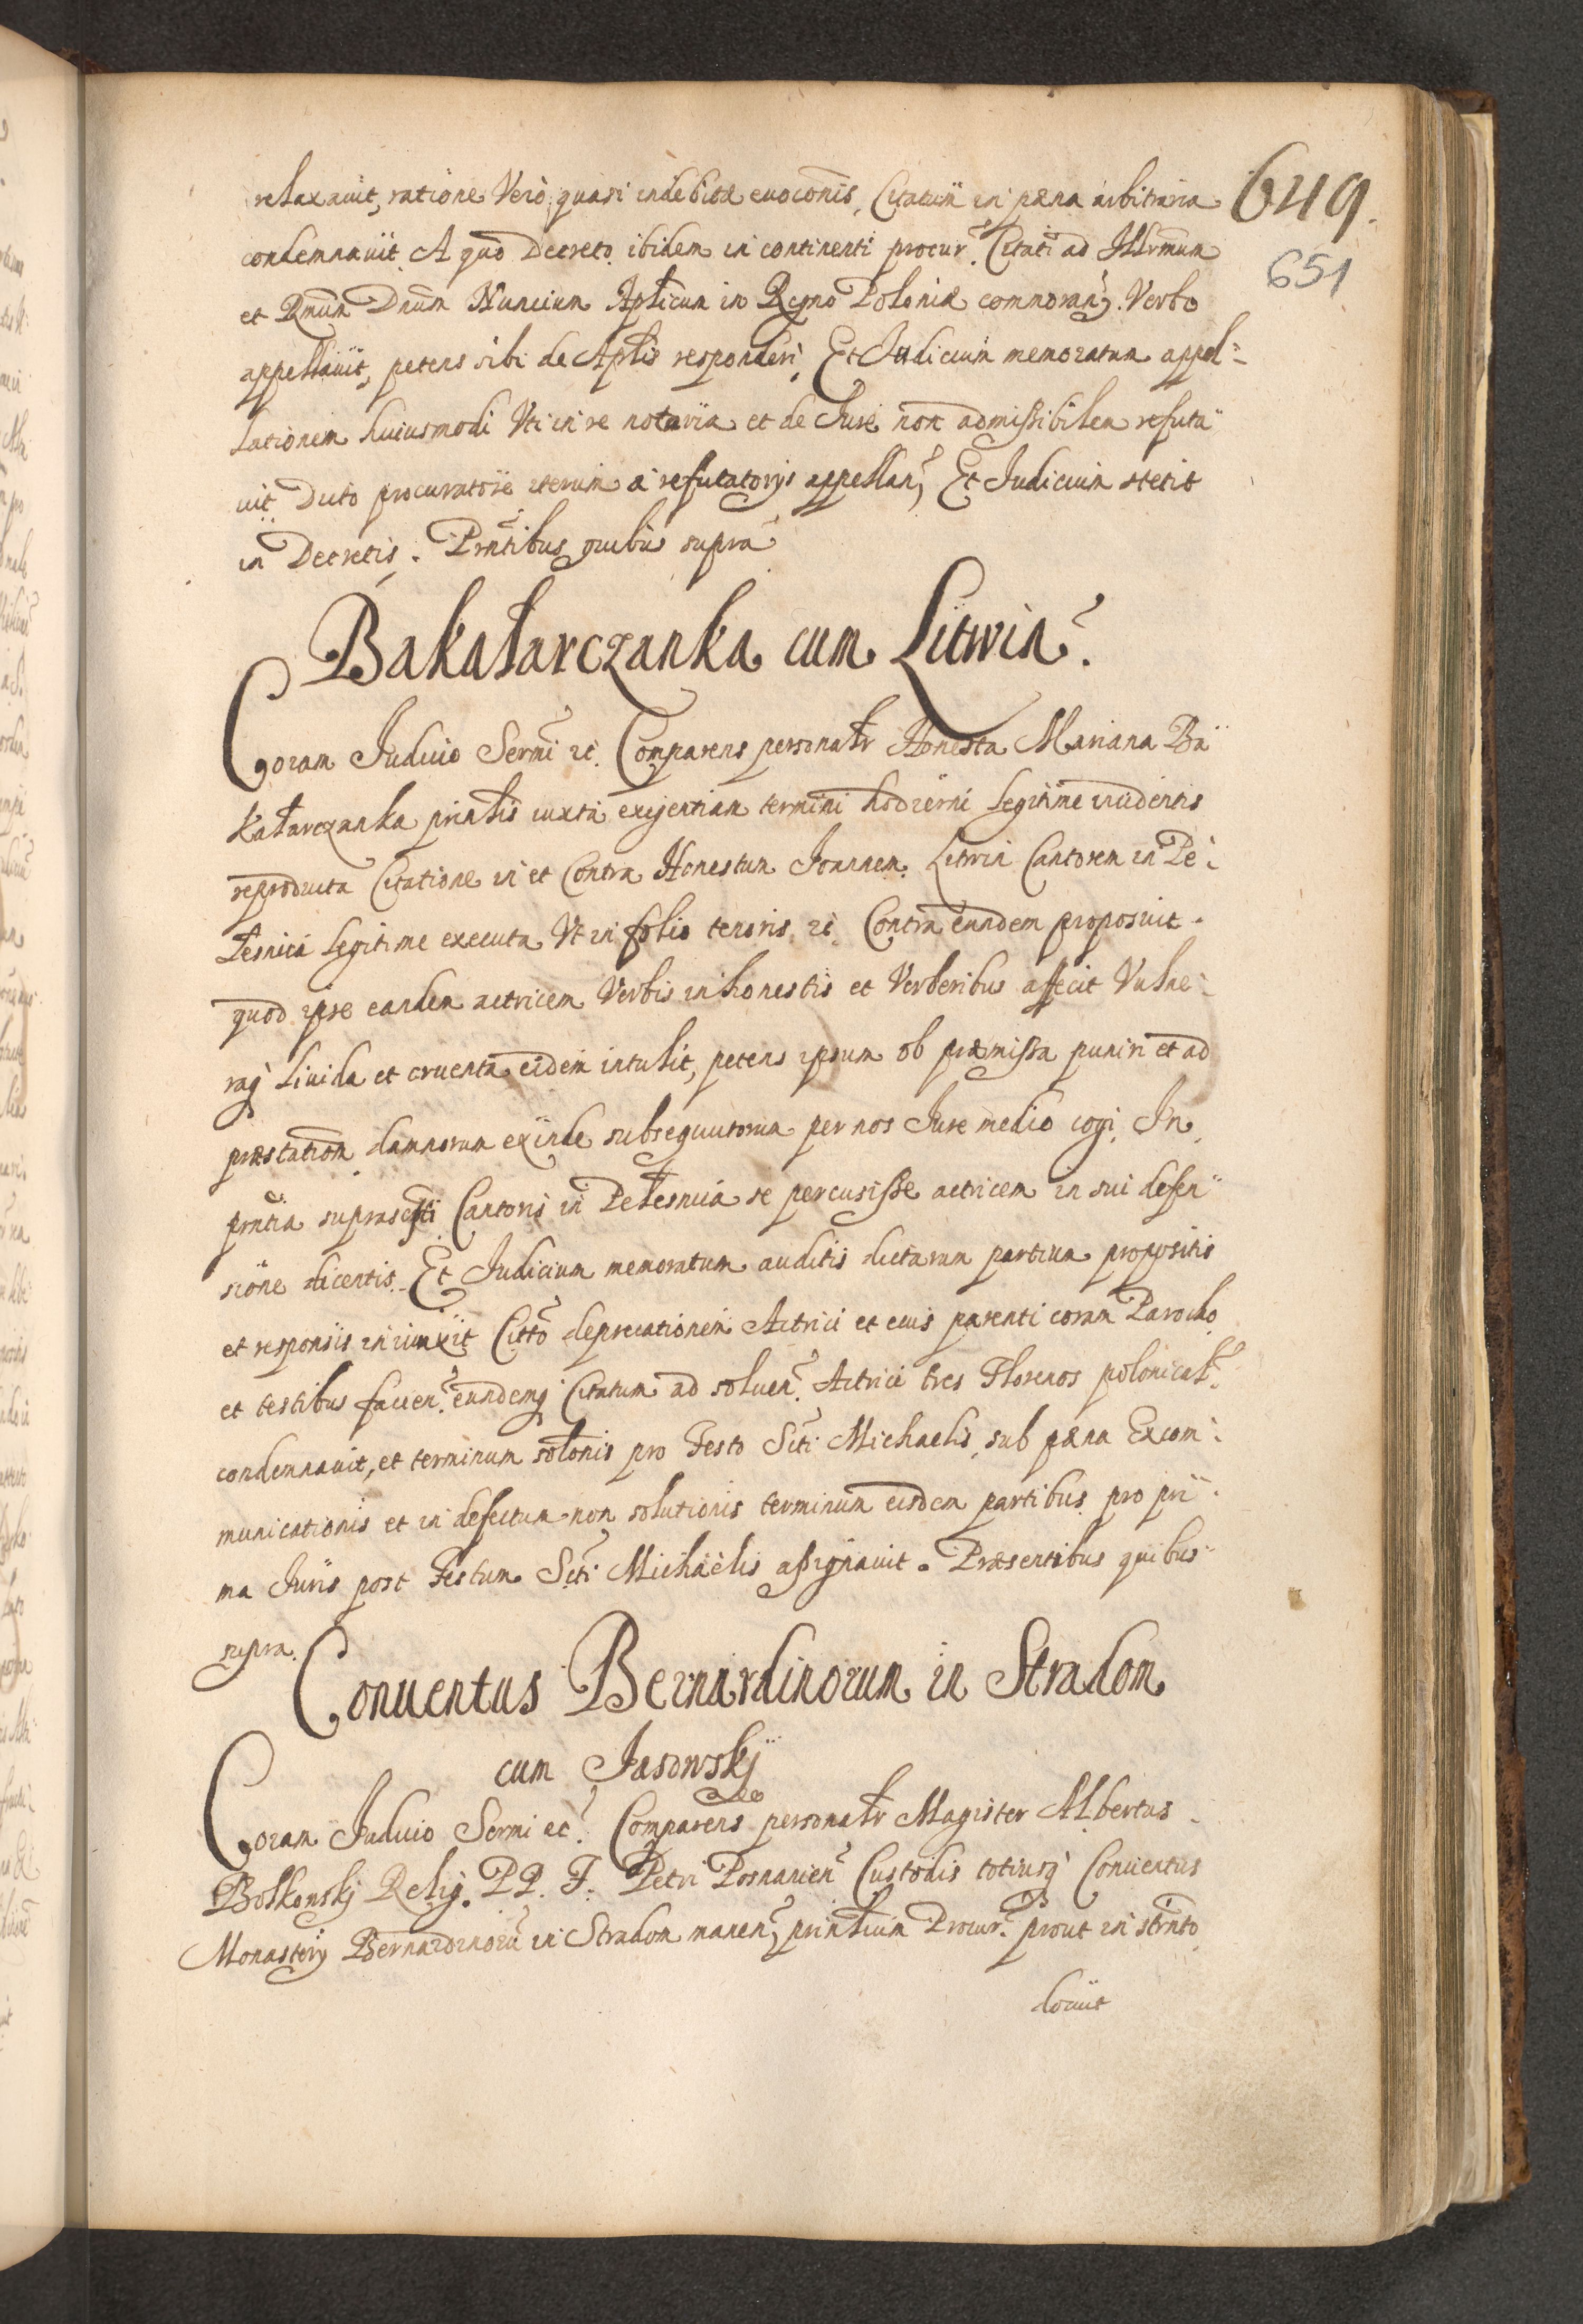 649.
651
relaxauit, ratione Vero quasi indebitæ euoconis, Citatum in pæna arbitraria
condemnauit. A quo Decreto ibidem in continenti procur. Citati ad Illrmum
et Rmum Dnum Nuncium Aplicum in Regno Poloniæ commoran, Verbo
appellauit, petens sibi de Aplis responderi. Et Iudicium memoratum appel=
lationem huiusmodi Vti in re notoria et de Iure non admissibilem refuta
uit Dicto procuratore iterum a refutatorijs appellan, Et Iudicium stetit
in Decretis. Prntibus quibus supra
Bakałarczanka cum Litwin.
Coram Iudicio Sermi etc. Comparens personalr Honesta Mariana Ba
kałarczanka prinlis iuxta exigentiam termini hodierni legitime incidentis
reproducta Citatione in et Contra Honestum Ioannem Litwin Cantorem in Pe
łesnica legitime executa Vt in folio tenoris etc. Contra eundem proposuit
quod ipse eandem actricem Verbis inhonestis et Verberibus affecit Vulne
raq liuida et cruenta eidem intulit, petens ipsum ob præmissa puniri et ad
præstation damnorum exinde subsequutorum per nos Iure medio cogi. In
prntia suprascpti Cantoris in Pełesnica se percusisse actricem in sui defen
sione dicentis. Et Iudicium memoratum auditis dictarum partium propositis
et responsis iniunxit Citto deprecationem Actrici et eius parenti coram Parocho
et testibus facien. eundemq Citatum ad soluen. Actrici tres Florenos polonical.
condemnauit, et terminum solonis pro Festo Scti Michaelis sub pæna Excom
municationis et in defectum non solutionis terminum eisdem partibus pro pri
ma Iuris post Festum Scti Michaelis assignauit. Præsentibus quibus
supra.
Conuentus Bernardinorum in Stradom
cum Jasowskj
Coram Iudicio Sermi etc. Comparens personalr Magister Albertus
Bolkowskj Relig. PP. F. Petri Posnanien Custodis totiusq Conuentus
Monasterij Bernardinorum in Stradom manen, prinlium Procur. prout in strnto
docuit